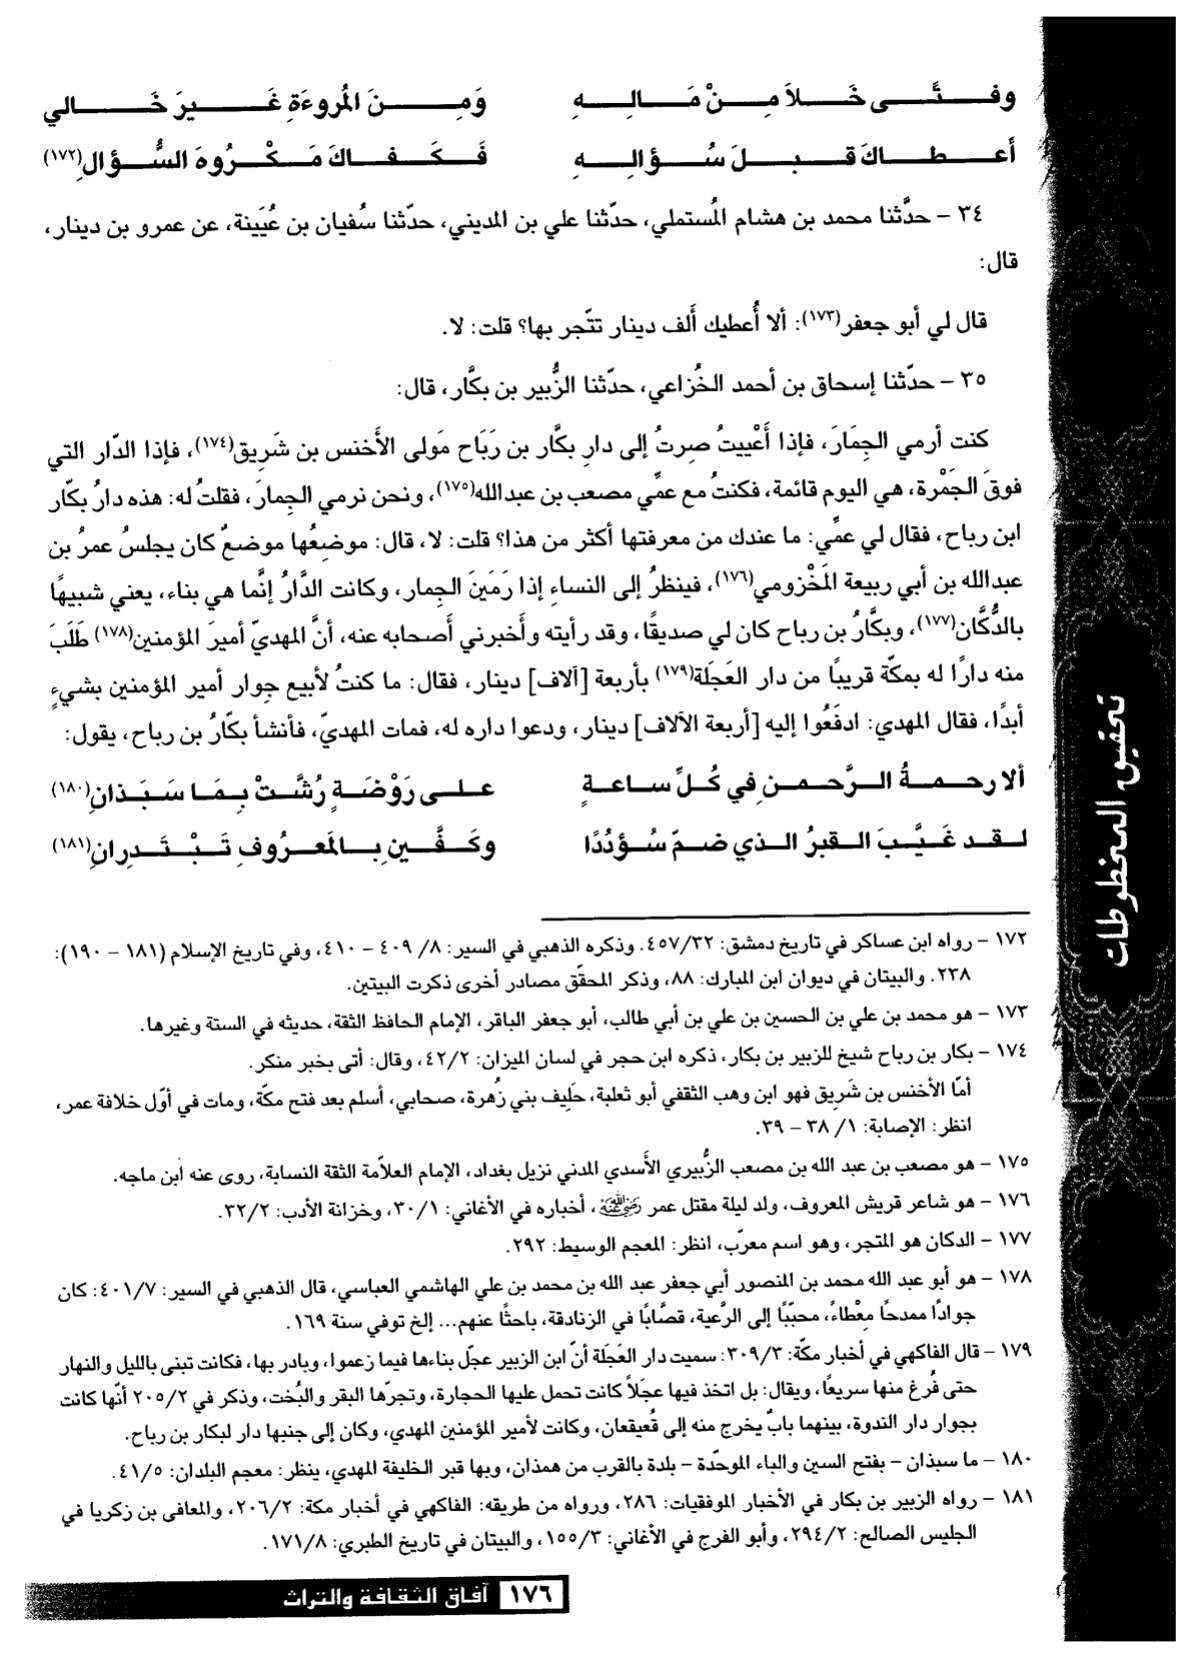 وفتًى خَلاَ مِنْ مَالِهِ وَمِنَ المُروءَةِ غَيرَ خَالي
أعطاكَ قبلَ سُؤالِهِ فَكَفاكَ مَكْرُوهَ السُّؤالِ(١٧٢)
٣٤ – حدَّثنا محمد بن هشام المُستملي، حدّثنا علي بن المديني، حدّثنا سُفيان بن عُيَينة، عن عمرو بن دينار،
قال:
قال لي أبو جعفر(١٧٣): ألا أُعطيك أَلف دينار تتّجر بها؟ قلت: لا.
٣٥ – حدّثنا إسحاق بن أحمد الخُزاعي، حدّثنا الزُّبير بن بكَّار، قال:
كنت أرمي الجِمَارَ، فإذا أَعْييتُ صِرتُ إلى دارِ بكَّار بن رَبَاح مَولى الأَخنس بن شَرِيق(١٧٤)، فإذا الدّار التي
فوقَ الجَمْرة، هي اليوم قائمة، فكنتُ مع عمِّي مصعب بن عبدالله(١٧٥)، ونحن نرمي الجِمارَ، فقلتُ له: هذه دارُ بكّار
ابن رباح، فقال لي عمِّي: ما عندك من معرفتها أكثر من هذا؟ قلت: لا، قال: موضعُها موضعٌ كان يجلسُ عمرُ بن
عبدالله بن أبي ربيعة المَخْزومي(١٧٦)، فينظرُ إلى النساءِ إذا رَمَينَ الجِمار، وكانت الدَّارُ إنَّما هي بناء، يعني شبيهًا
بالدُّكَّان(١٧٧)، وبكَّارُ بن رباح كان لي صديقًا، وقد رأيته وأخبرني أَصحابه عنه، أنَّ المهديّ أميرَ المؤمنين(١٧٨) طَلَبَ
منه دارًا له بمكّة قريبًا من دار العَجَلة(١٧٩) بأربعة [آلاف] دينار، فقال: ما كنتُ لأبيع جِوار أمير المؤمنين بشيءٍ
أبدًا، فقال المهدي: ادفَعُوا إليه [أربعة الآلاف] دينار، ودعوا داره له، فمات المهديّ، فأنشأ بكّارُ بن رباح، يقول:
ألا رحمةُ الرَّحمنِ في كُلِّ ساعةٍ على رَوْضَةٍ رُشَّتْ بِمَا سَبَذانِ(١٨٠)
لقد غَيَّبَ القبرُ الذي ضمّ سُؤدُدًا وكَفَّينِ بالمَعرُوفِ تَبْتَدِرانِ(١٨١)
١٧٢ – رواه ابن عساكر في تاريخ دمشق: ٤٥٧/٣٢. وذكره الذهبي في السير: ٨/ ٤٠٩ – ٤١٠، وفي تاريخ الإسلام (١٨١ – ١٩٠):
٢٣٨. والبيتان في ديوان ابن المبارك: ٨٨، وذكر المحقّق مصادر أخرى ذكرت البيتين.
١٧٣ – هو محمد بن علي بن الحسين بن علي بن أبي طالب، أبو جعفر الباقر، الإمام الحافظ الثقة، حديثه في الستة وغيرها.
١٧٤ – بكار بن رباح شيخ للزبير بن بكار، ذكره ابن حجر في لسان الميزان: ٤٢/٢، وقال: أتى بخبر منكر.
أمّا الأخنس بن شَرِيق فهو ابن وهب الثقفي أبو ثعلبة، حَلِيف بني زُهرة، صحابي، أسلم بعد فتح مكّة، ومات في أوّل خلافة عمر،
انظر: الإصابة: ١/ ٣٨ – ٣٩.
١٧٥ – هو مصعب بن عبد الله بن مصعب الزُّبيري الأَسدي المدني نزيل بغداد، الإمام العلاّمة الثقة النسابة، روى عنه ابن ماجه.
١٧٦ – هو شاعر قريش المعروف، ولد ليلة مقتل عمر رضي الله عنه، أخباره في الأغاني: ٣٠/١، وخزانة الأدب: ٣٢/٢.
١٧٧ – الدكان هو المتجر، وهو اسم معرّب، انظر: المعجم الوسيط: ٢٩٢.
١٧٨ – هو أبو عبد الله محمد بن المنصور أبي جعفر عبد الله بن محمد بن علي الهاشمي العباسي، قال الذهبي في السير: ٤٠١/٧: كان
جوادًا ممدحًا مِعْطاءً، محبّبًا إلى الرَّعية، قصَّابًا في الزنادقة، باحثًا عنهم... إلخ توفي سنة ١٦٩.
١٧٩ – قال الفاكهي في أخبار مكّة: ٣٠٩/٣: سميت دار العَجَلة أنّ ابن الزبير عجّل بناءها فيما زعموا، وبادر بها، فكانت تبنى بالليل والنهار
حتى فُرغ منها سريعًا، ويقال: بل اتخذ فيها عجَلاً كانت تحمل عليها الحجارة، وتجرّها البقر والبُخت، وذكر في ٢٠٥/٢ أنّها كانت
بجوار دار الندوة، بينهما بابٌ يخرج منه إلى قُعيقعان، وكانت لأمير المؤمنين المهدي، وكان إلى جنبها دار لبكار بن رباح.
١٨٠ – ما سبذان – بفتح السين والباء الموحّدة – بلدة بالقرب من همذان، وبها قبر الخليفة المهدي، ينظر: معجم البلدان: ٤١/٥.
١٨١ – رواه الزبير بن بكار في الأخبار الموفقيات: ٢٨٦، ورواه من طريقه: الفاكهي في أخبار مكة: ٢٠٦/٢، والمعافى بن زكريا في
الجليس الصالح: ٢٩٤/٢، وأبو الفرج في الأغاني: ١٥٥/٣، والبيتان في تاريخ الطبري: ١٧١/٨.
١٧٦ آفاق الثقافة والتراث
تحقيق المخطوطات